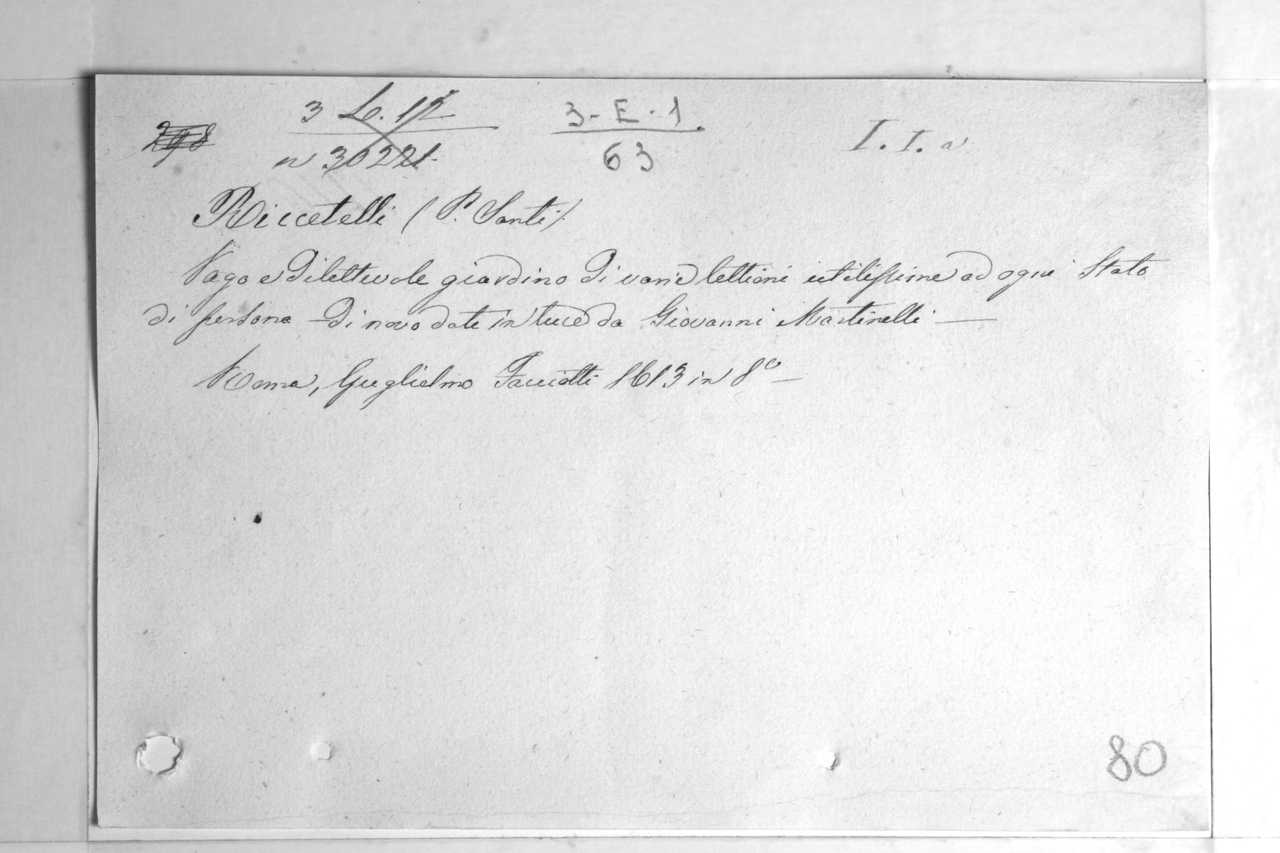 298 3 L. 12 3-E-1 I. I. a
n 30221 63
Riccetelli (P. Santi)
Vago e dilettevole giardino di varie lettioni utilissime ad ogni stato
di persona di novo date in luce da Giovanni Martinelli —
Roma, Guglielmo Facciotti 1613 in 8° —
80